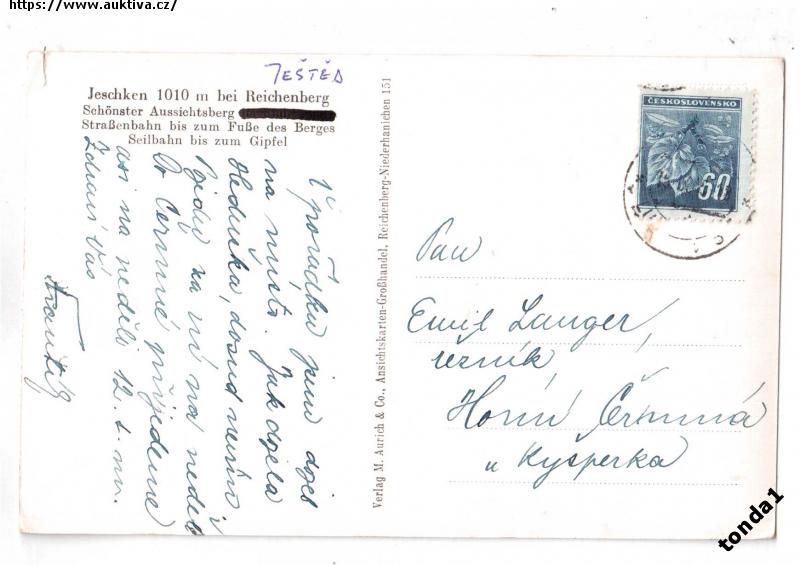 https://www.auktiva.cz/
JEŠTĚD
Jeschken 1010 m bei Reichenberg
Schönster Aussichtsberg
Straßenbahn bis zum Fuße des Berges
Seilbahn bis zum Gipfel
V pořádku jsem dojel
na místo. Jak dojela
Heduška, dosud nevím i
pojedu na ní na neděli
Do Čermné přijedeme
asi na neděli 12. t. m.
Zdraví Vás
František
Verlag M. Aurich & Co., Ansichtskarten-Großhandel, Reichenberg-Niederhanichen 151
ČESKOSLOVENSKO
60
Pan
Emil Langer,
řezník,
Horní Čermná
u Kyšperka
tonda1